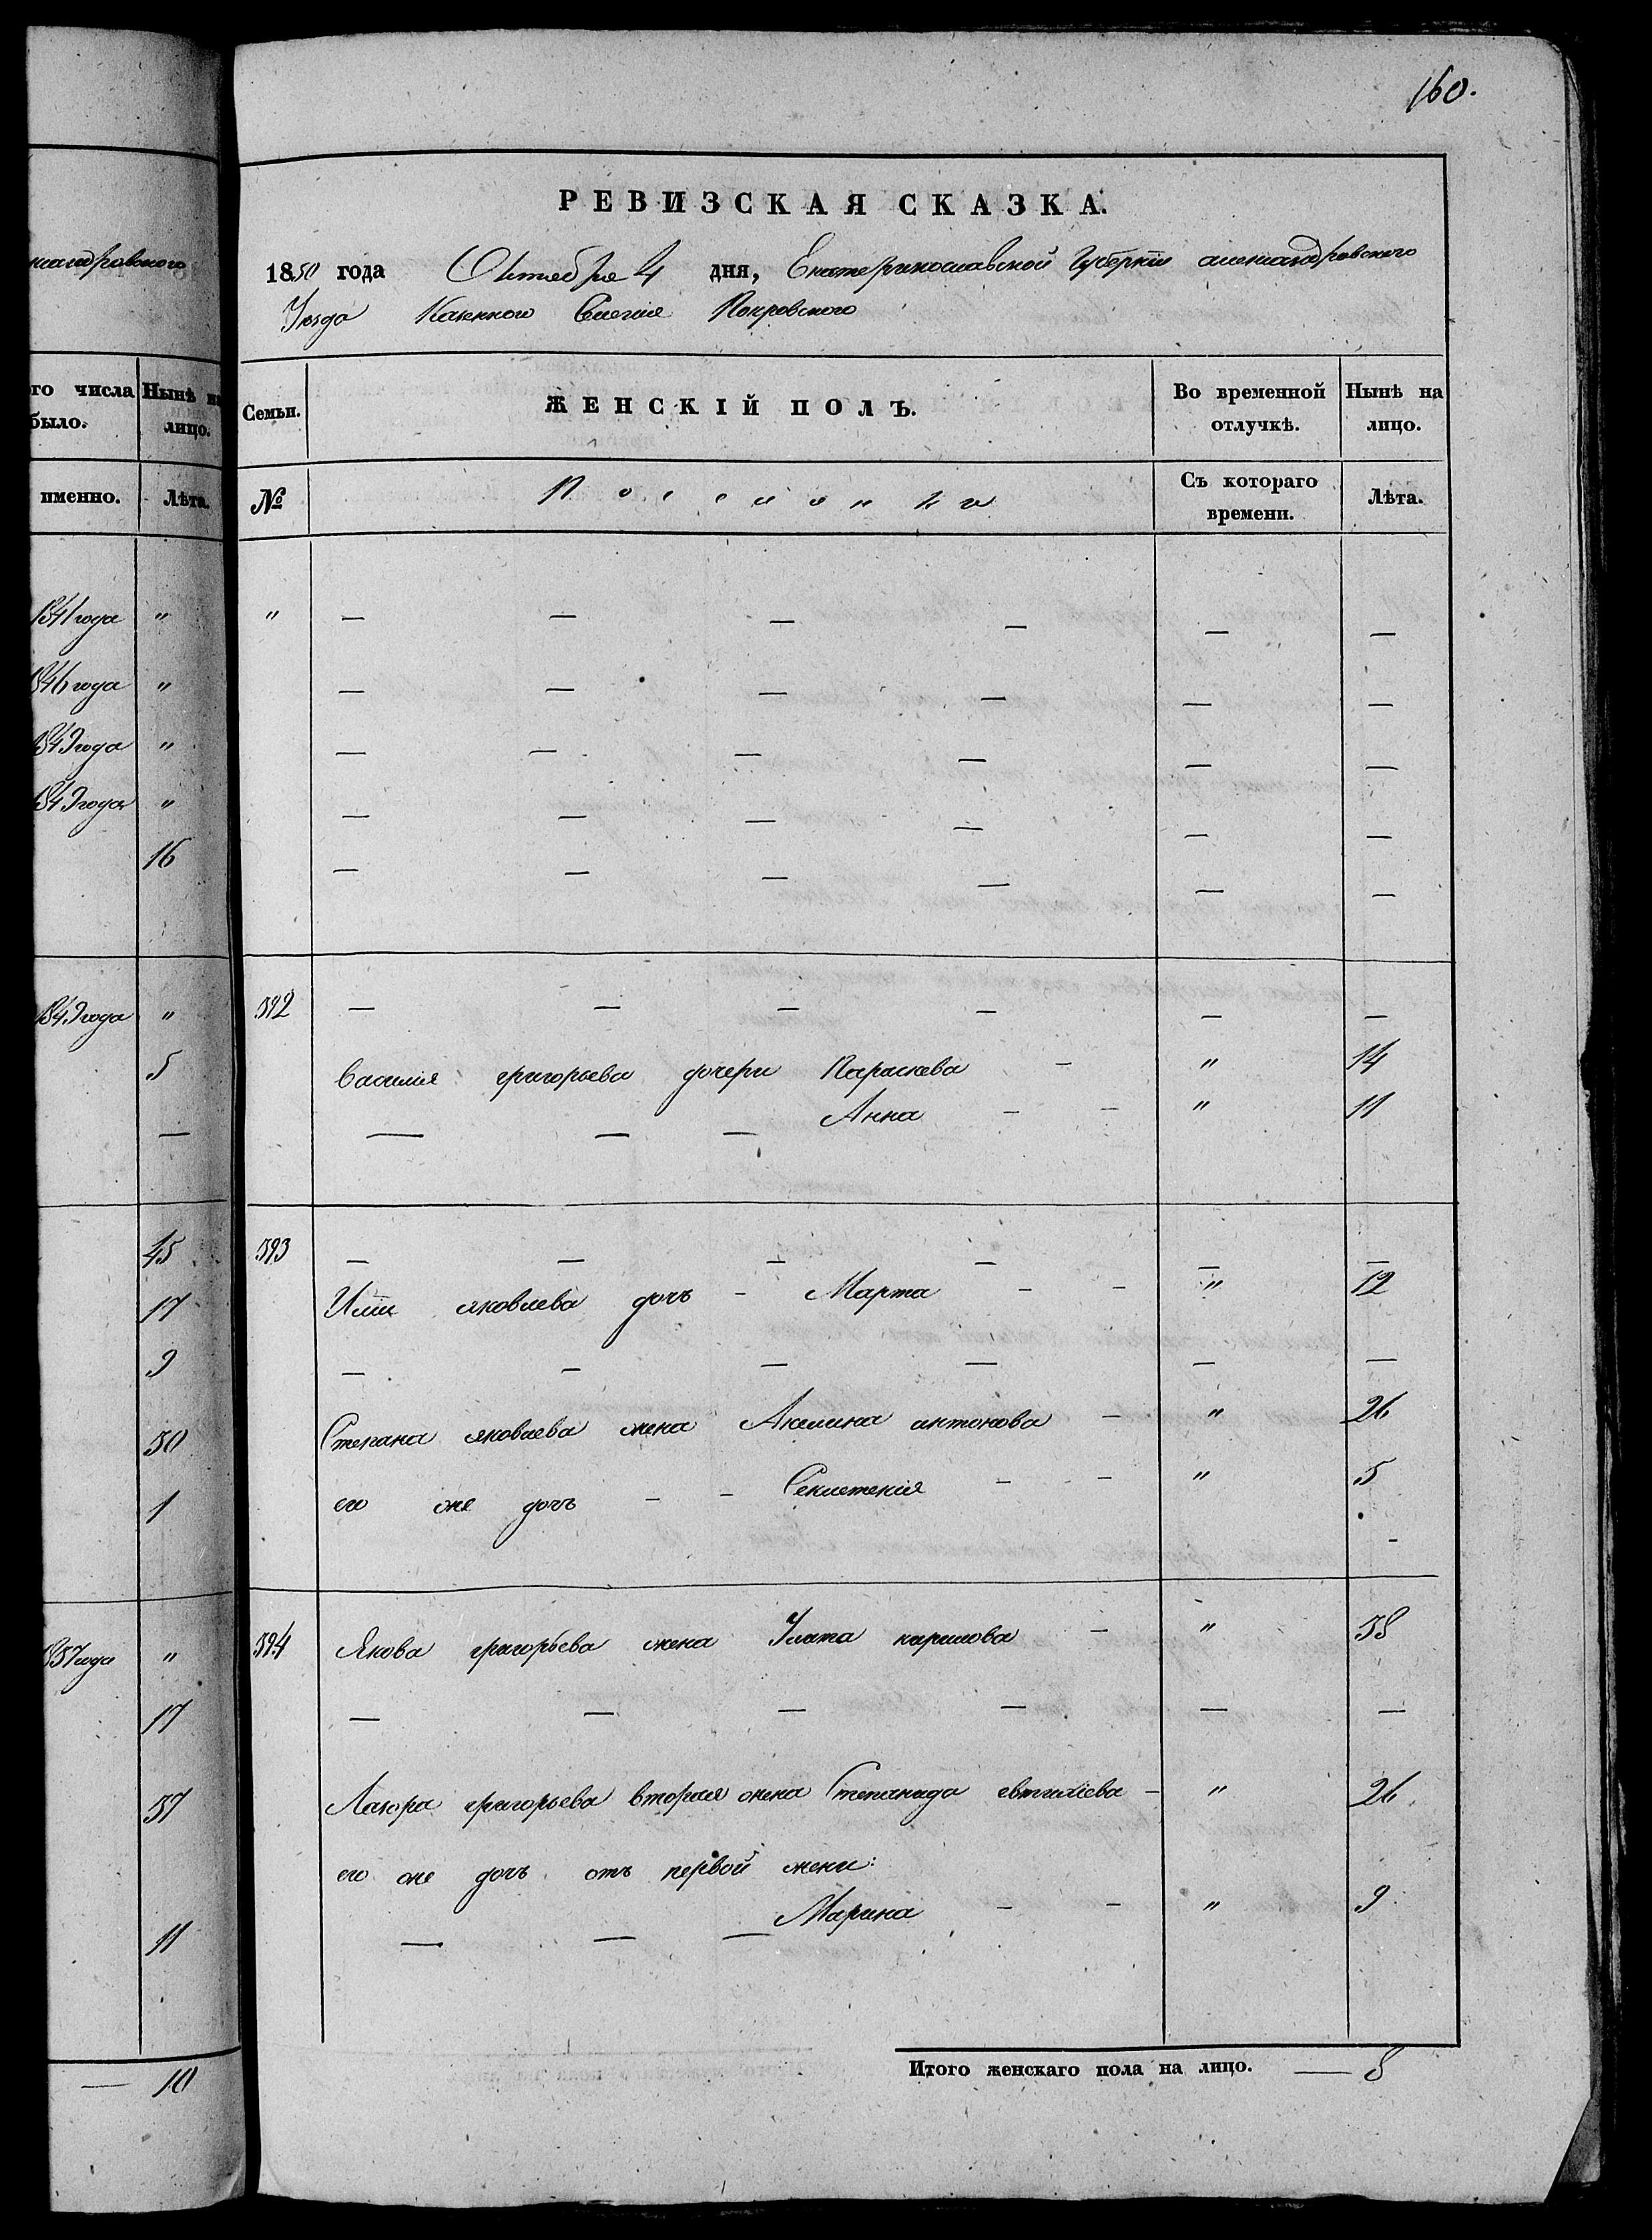 160.
РЕВИЗСКАЯ СКАЗКА.
1850 года Октября 4 дня, Екатеринославской Губернiи александровского
Уезда Казенного Селения Покровского
Семьи. ЖЕНСКІЙ ПОЛЪ. Во временной отлучкѣ. Нынѣ на лицо.
№ Съ котораго времени. Лѣта.
го числа было. Нынѣ на лицо.
именно. Лѣта.
1841 года "
1846 года "
1849 года "
1849 года "
16
" — — — — — —
— — — — — —
— — — — — —
— — — — — —
— — — — — —
1849 года "
5
—
592 — — — — — —
Василия григорьева дочери Параскева — " 14
— — — Анна — — " 11
45
17
9
30
1
593 — — — — — —
Илiи яковлева дочь - Марта — - " 12
— — — — — —
Степана яковлева жена Акилина антонова — " 26
его же дочь — - Секлетения — — " 5
1837 года "
17
37
11
594 Якова григорьева жена Улита кирилова — " 38
— — — — — —
Лазора григорьева вторая жена Степанида евтихiева — " 26
его же дочь отъ первой жени:
— — — Марина — — " 9
— 10
Итого женскаго пола на лицо. — 8